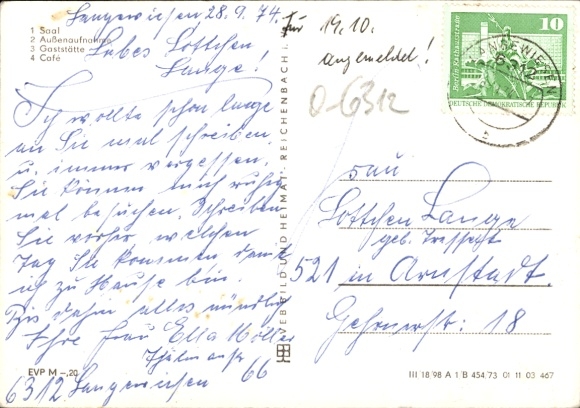 Langewiesen 28.9.74.
1 Saal
2 Außenaufnahme
3 Gaststätte
4 Café
Liebes Lottchen
Lange!
Ich wollte schon lange
an Sie mal schreiben,
u. immer vergessen.
Sie können mich ruhig
mal besuchen. Schreiben
Sie vorher welchen
Tag Sie kommen damit
ich zu Hause bin.
Bis dahin alles mündlich
Ihre Frau Ella Möller
66
6312 Langewiesen
EVP M –,20
VEB BILD UND HEIMAT REICHENBACH i.
für 19.10.
angemeldet!
O-6312
10
Berlin Rathausstraße
DEUTSCHE DEMOKRATISCHE REPUBLIK
LANGEWIESEN
6312
b
Frau
Lottchen Lange
geb.
521 in Arnstadt.
Gehrenerstr: 18
III 18 98 A 1 B 454/73 01 11 03 467